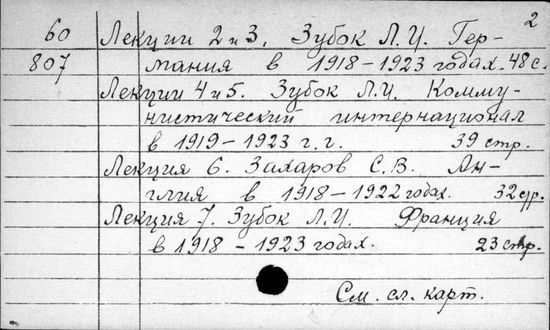 2
60 Лекции 2 и 3. Зубок Л.И. Гер-
807 мания в 1918-1923 годах. 48 с.
Лекции 4 и 5. Зубок Л.И. Комму-
нистический интернационал
в 1919-1923 г.г. 39 стр.
Лекция 6. Захаров С.В. Ан-
глия в 1918-1922 годах. 32 стр.
Лекция 7. Зубок Л.И. Франция
в 1918-1923 годах. 23 стр.
См. сл. карт.